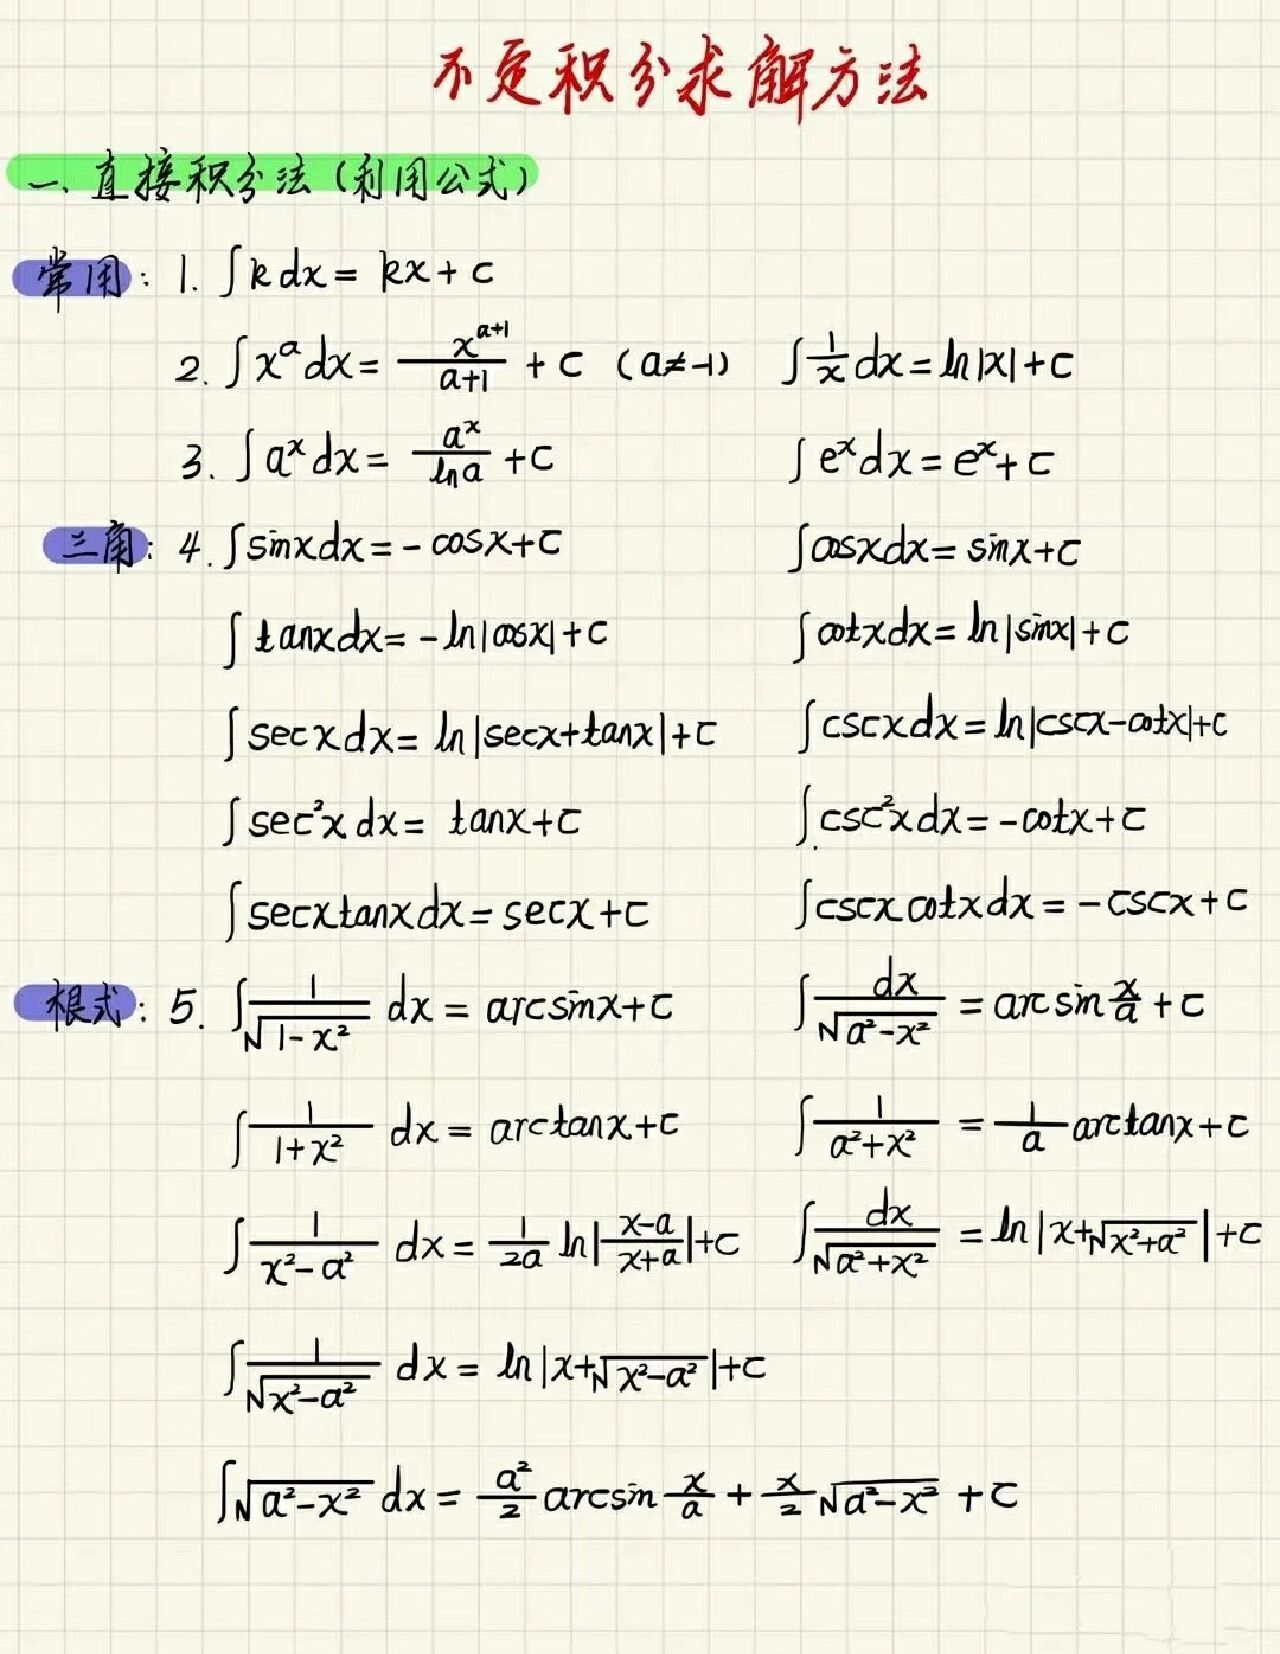 不定积分求解方法
一、直接积分法(利用公式)
常用: 1. ∫k dx = kx + C
2. ∫x^a dx = x^(a+1)/(a+1) + C (a≠-1) ∫1/x dx = ln|x| + C
3. ∫a^x dx = a^x/ln a + C ∫e^x dx = e^x + C
三角: 4. ∫sinx dx = -cosx + C ∫cosx dx = sinx + C
∫tanx dx = -ln|cosx| + C ∫cotx dx = ln|sinx| + C
∫secx dx = ln|secx+tanx| + C ∫cscx dx = ln|cscx-cotx| + C
∫sec²x dx = tanx + C ∫csc²x dx = -cotx + C
∫secxtanx dx = secx + C ∫cscxcotx dx = -cscx + C
根式: 5. ∫1/√(1-x²) dx = arcsinx + C ∫dx/√(a²-x²) = arcsin x/a + C
∫1/(1+x²) dx = arctanx + C ∫1/(a²+x²) = 1/a arctanx + C
∫1/(x²-a²) dx = 1/2a ln|(x-a)/(x+a)| + C ∫dx/√(a²+x²) = ln|x+√(x²+a²)| + C
∫1/√(x²-a²) dx = ln|x+√(x²-a²)| + C
∫√(a²-x²) dx = a²/2 arcsin x/a + x/2 √(a²-x²) + C